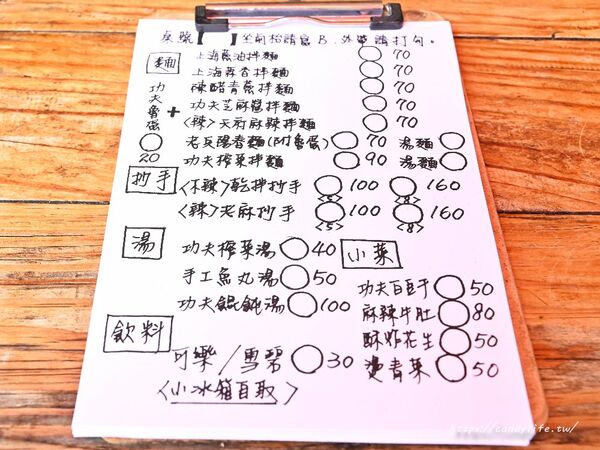 座號【 】空前檯請寫B.外帶請打勾。
麵
上海蔥油拌麵 ○ 70
上海麻香拌麵 ○ 70
陳醋青蔥拌麵 ○ 70
功夫魯蛋 ○ 20
+
功夫芝麻醬拌麵 ○ 70
〈辣〉天府麻辣拌麵 ○ 70
老兵陽春麵(附魯蛋) ○ 70 湯麵 ○
功夫榨菜拌麵 ○ 90 湯麵 ○
抄手
〈不辣〉乾拌抄手 ○ 100 ○ 160
〈5〉 〈8〉
〈辣〉老麻抄手 ○ 100 ○ 160
〈5〉 〈8〉
湯
功夫榨菜湯 ○ 40
手工魚丸湯 ○ 50
功夫餛飩湯 ○ 100
小菜
功夫白豆干 ○ 50
麻辣牛肚 ○ 80
酥炸花生 ○ 50
燙青菜 ○ 50
飲料
可樂/雪碧 ○ 30
〈小冰箱自取〉
https://candylife.tw/